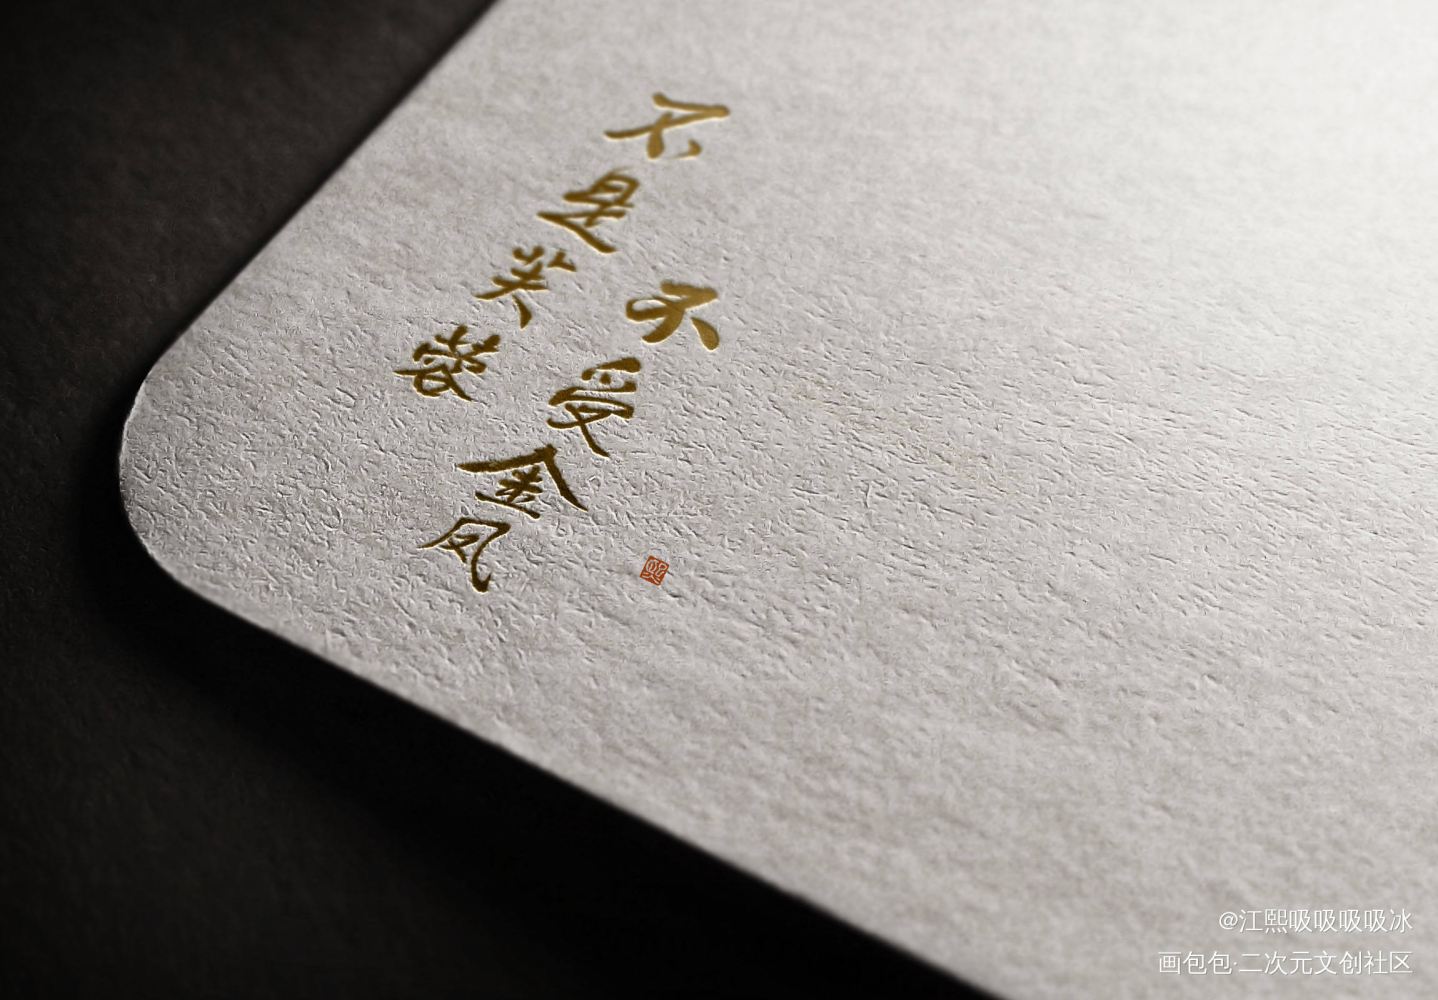 不是芙蓉
不受金风
@江熙吸吸吸吸冰
画包包·二次元文创社区